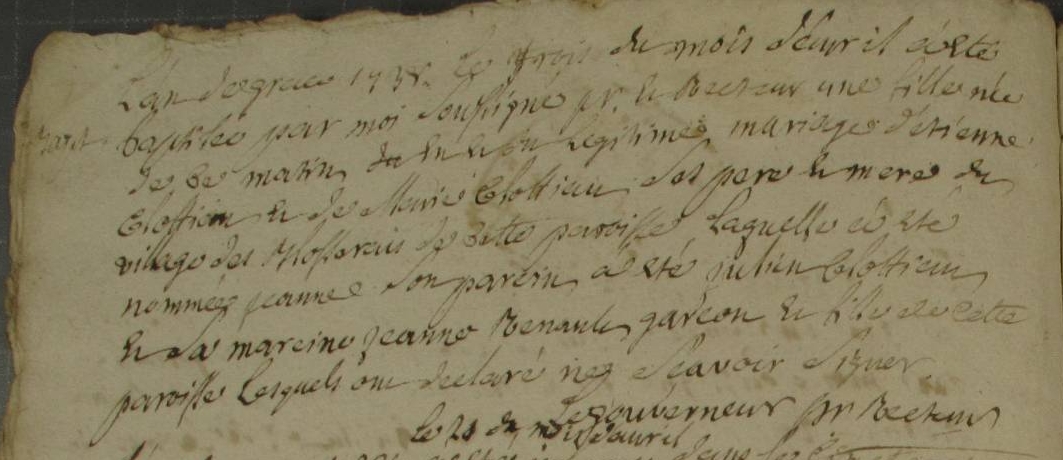 L'an de grace le trois du mois d'auril a été
baptisée par moi soussigné pr. le Recteur une fille née
de ce matin du legitime mariage d'etienne
Clottiau et de Marie Clottiau ses pere et mere du
village des de cette paroisse Laquelle a été
nommée jeanne son parein a été julien Clottiau
et sa mareine jeanne Renault garcon et fille de cette
paroisse Lesquels ont declaré ne sçavoir signer
Legouverneur pr Recteur
le du mois d'auril